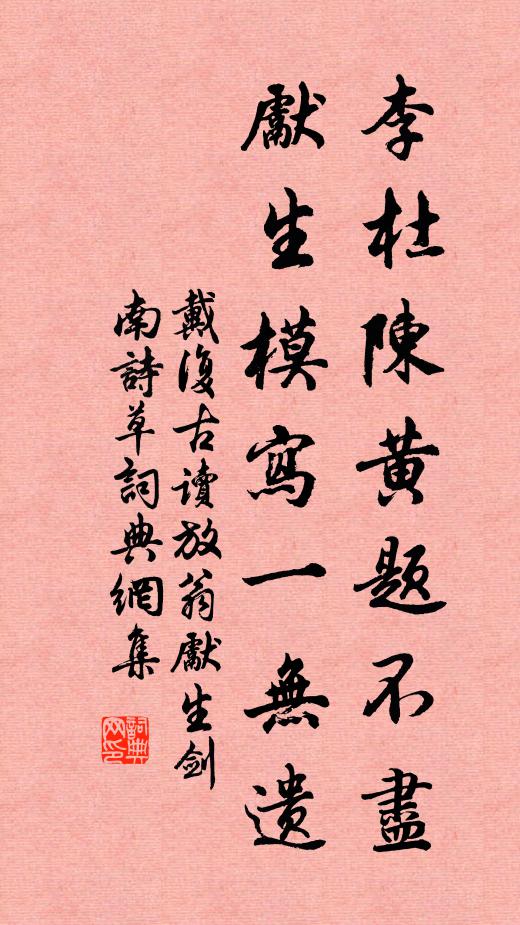 李杜陳黃題不盡
獻生模寫一無遺
戴復古讀放翁獻生劍
南詩草詞典網集
詞典網印